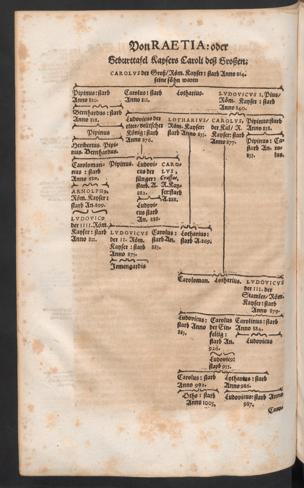 Von RAETIA: oder
Gebarttafel Kaysers Caroli deß Großen:
CAROLVS der Groß / Röm. Kayser: starb Anno 814.
seine söhn waren
Pipinus: starb
Anno 810.
Carolus: starb
Anno 811.
Lotharius.
LVDOVICVS I. Pius /
Röm. Kayser: starb
Anno 840.
Bernhardus: starb
Anno 818.
Pipinus
Herebertus. Pipi-
nus. Bernhardus.
Ludovicus der
König: starb
Anno 876.
LOTHARIVS /
Röm. Kayser:
Anno 855.
CAROLVS
der Kal / R.
Kayser: starb
Anno 877.
Pipinus starb
Anno 838.
Pipinus: Ca-
Caroloman-
nus: starb
Anno 880.
ARNOLPHVS
Röm. Kayser:
starb An. 899.
LVDOVICVS
der IIII. Röm.
Kayser: starb
Pipinus.
Ludovi-
cus der
Jünger:
starb. A.
882.
Ludovi-
cus starb
CARO-
LVS
Crassus,
R. Kay-
ser starb
A. 888.
LVDOVICVS
der II. Röm.
Kayser: starb
Anno 875.
Irmengardis
Carolus:
starb An.
Lotharius:
starb A. 869.
Caroloman.
Lotharius.
LVDOVICVS
III. der
Stamler / Röm-
Kayser: starb
Anno 879.
Ludovicus:
starb Anno
Carolus
der Ein-
feltig:
starb An.
Carolinus:
starb
Anno 884.
Ludovicus:
starb 955.
Carolus: starb
Anno
Lotharius: starb
Anno 986.
Otho: starb
Anno 1005.
Ludovicus: starb Anno
987.